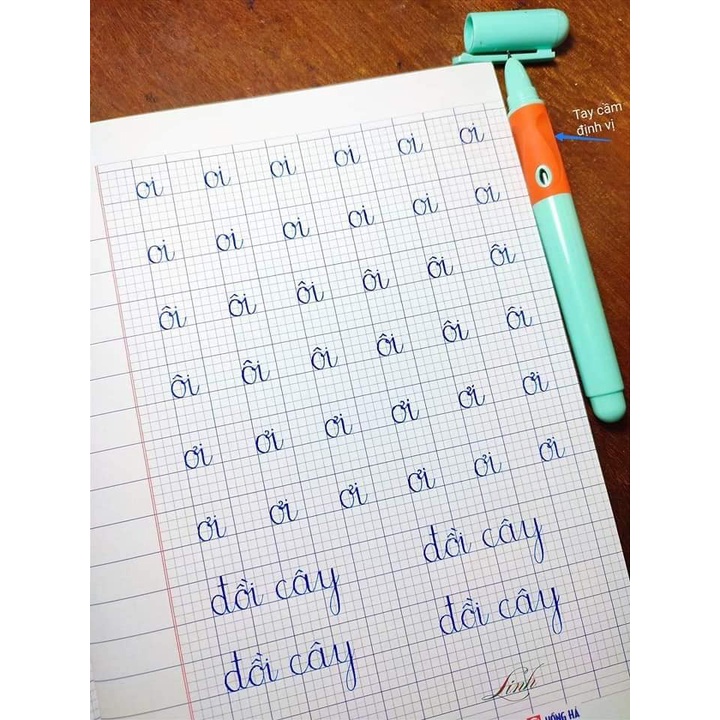 Tay cầm
định vị
oi oi oi oi oi oi
oi oi oi oi oi oi
ôi ôi ôi ôi ôi ôi
ôi ôi ôi ôi ôi ôi
ơi ơi ơi ơi ơi ơi
ơi ơi ơi ơi ơi ơi
đồi cây đồi cây
đồi cây đồi cây
Linh
HỒNG HÀ